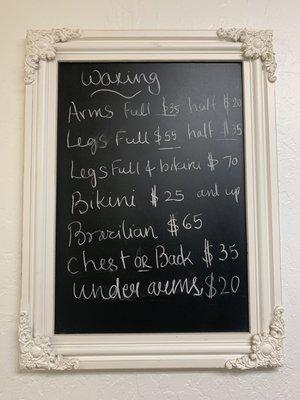 Waxing
Arms Full $35 half $20
Legs Full $55 half $35
Legs Full & bikini $70
Bikini $25 and up
Brazilian $65
Chest OR Back $35
under arms $20